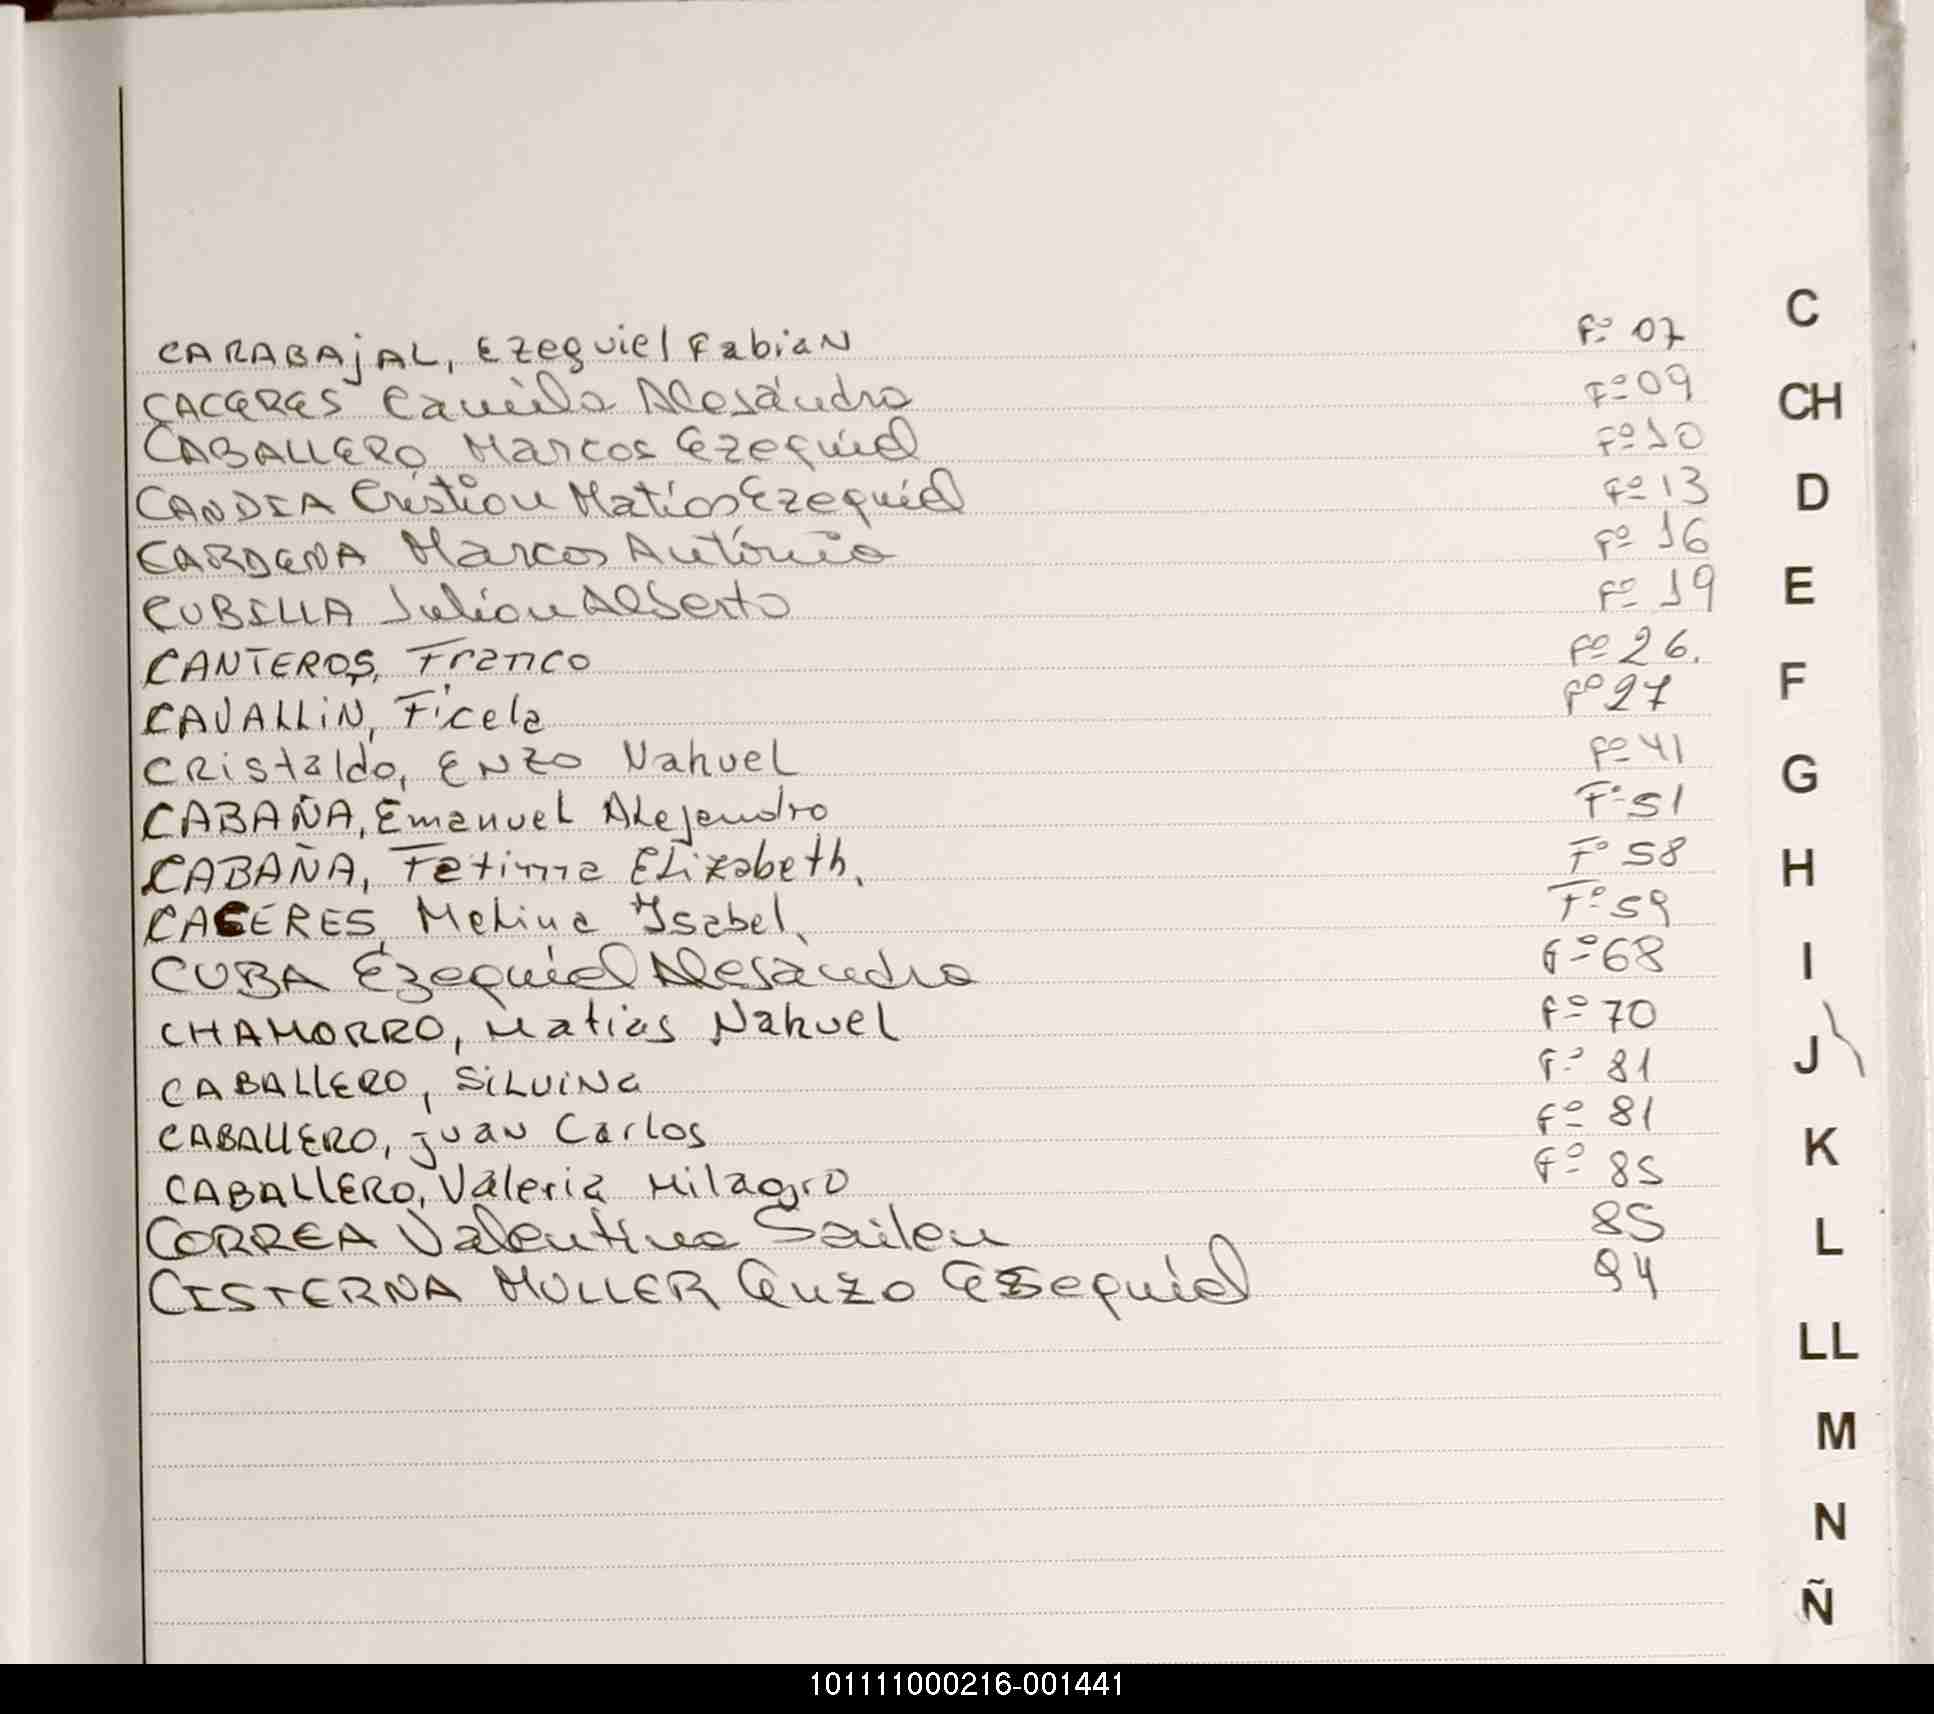 CARABAjAL, Ezequiel Fabian F° 07
CACERES Camila Alesandra F° 09
CABALLERO Marcos Ezequiel F° 10
CANDIA Cristian Matías Ezequiel F° 13
CARDENA Marcos Antonio F° 16
CUBILLA Julian Alberto F° 19
CANTEROS, Franco F° 26.
CAVALLiN, Ficela F° 27
CRistaldo, ENZO Nahuel F° 41
CABAÑA, Emanuel Alejandro F° 51
CABAÑA, Fatima Elizabeth. F° 58
CACERES, Melina Isabel. F° 59
CUBA Ezequiel Alesandro F° 68
CHAMORRO, Matias Nahuel F° 70
CABALLERO, SiLViNa F° 81
CABALLERO, juan Carlos F° 81
CABALLERO, Valeria Milagro F° 85
CORREA Valentina Sailen 85
CISTERNA MULLER Enzo Esequiel 94
C
CH
D
E
F
G
H
I
J
K
L
LL
M
N
Ñ
101111000216-001441